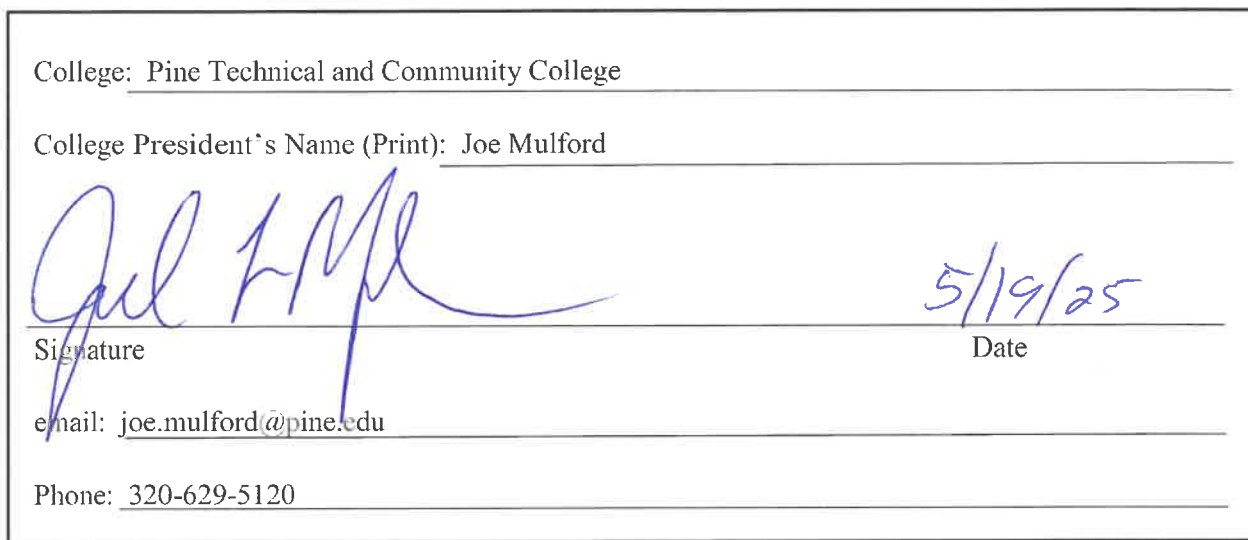 College: Pine Technical and Community College
College President's Name (Print): Joe Mulford
5/19/25
Signature Date
email: joe.mulford@pine.edu
Phone: 320-629-5120